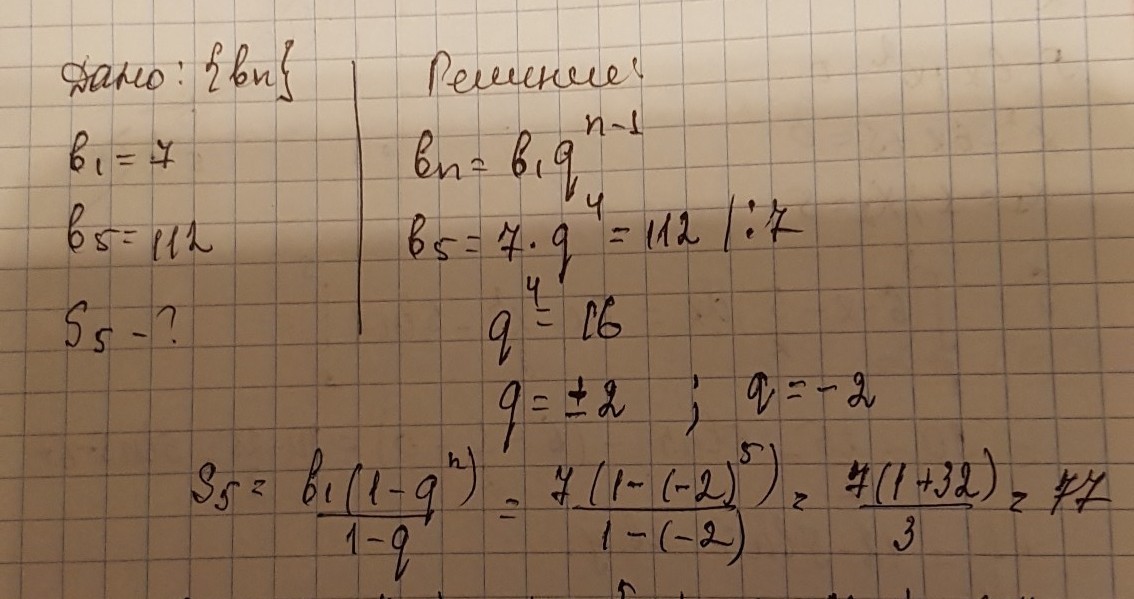 Дано: {bn}
b₁ = 7
b₅ = 112
S₅ - ?
Решение:
bn = b₁qⁿ⁻¹
b₅ = 7 · q⁴ = 112 | : 7
q⁴ = 16
q = ± 2 ; q = - 2
S₅ = b₁(1-qⁿ)/(1-q) = 7(1-(-2)⁵)/(1-(-2)) = 7(1+32)/3 = 77